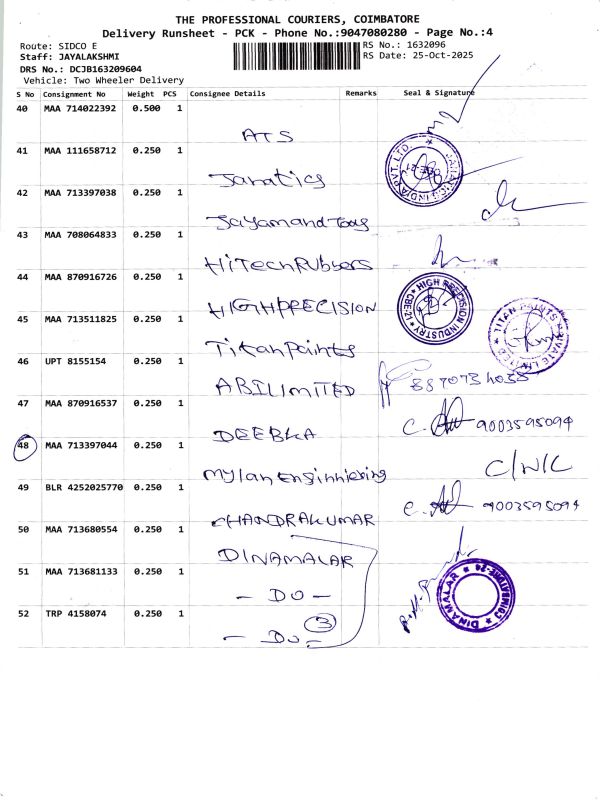 THE PROFESSIONAL COURIERS, COIMBATORE
Delivery Runsheet - PCK - Phone No.:9047080280 - Page No.:4
Route: SIDCO E
RS No.: 1632096
Staff: JAYALAKSHMI
RS Date: 25-Oct-2025
DRS No.: DCJB163209604
Vehicle: Two Wheeler Delivery
S No Consignment No Weight PCS Consignee Details Remarks Seal & Signature
40 MAA 714022392 0.500 1
ATS
41 MAA 111658712 0.250 1
Janatics
JANATICS INDIA PVT. LTD.
42 MAA 713397038 0.250 1
Jayamand Tools
43 MAA 708064833 0.250 1
HiTech Rubbers
44 MAA 870916726 0.250 1
HIGH PRECISION
HIGH PRECISION INDUSTRY ★ CBE-21 ★
45 MAA 713511825 0.250 1
Titan Paints
TITAN PAINTS PRIVATE LIMITED
46 UPT 8155154 0.250 1
ABI LIMITED
47 MAA 870916537 0.250 1
DEEBKA 9003595094
48 MAA 713397044 0.250 1
Mylan Enginniering C/N/C
49 BLR 4252025770 0.250 1
CHANDRAKUMAR 9003595094
50 MAA 713680554 0.250 1
DINAMALAR
51 MAA 713681133 0.250 1
- DO -
DINAMALAR ★ COIMBATORE-24 ★
52 TRP 4158074 0.250 1
- DO - 3